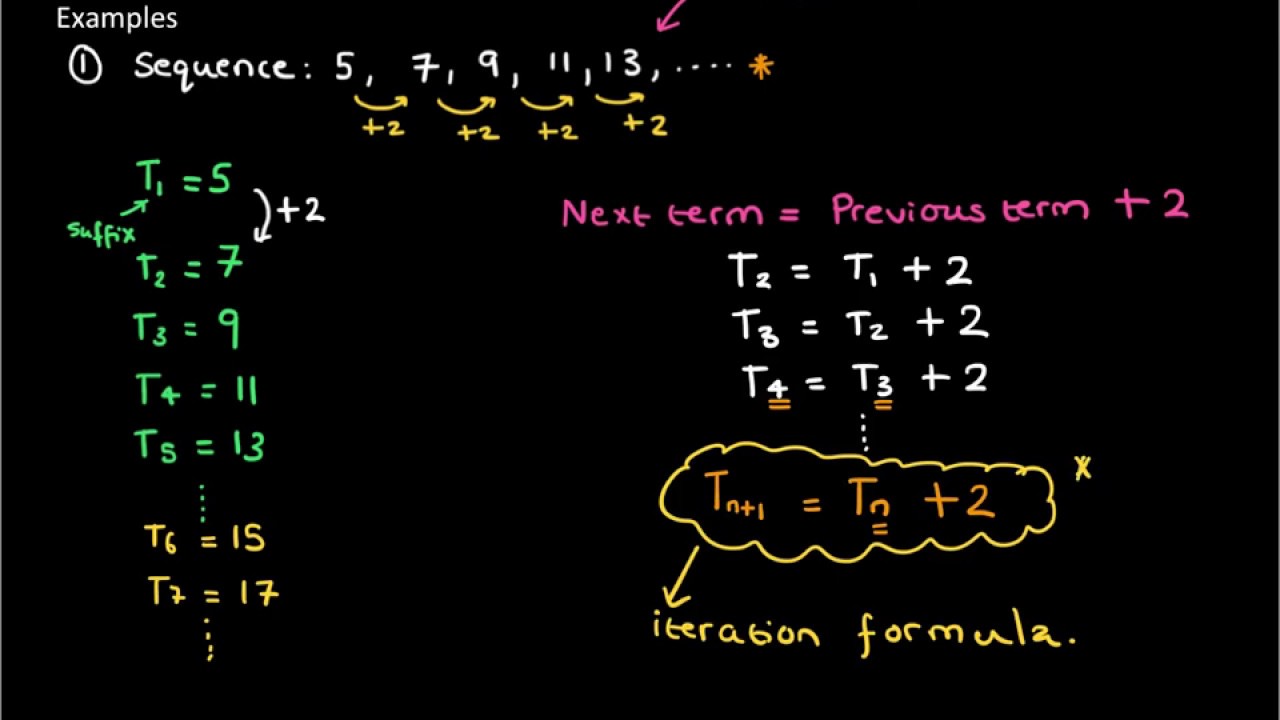 Examples
① Sequence: 5, 7, 9, 11, 13, ..... *
+2 +2 +2 +2
T₁ = 5
+2
suffix
T₂ = 7
T₃ = 9
T₄ = 11
T₅ = 13
T₆ = 15
T₇ = 17
Next term = Previous term + 2
T₂ = T₁ + 2
T₃ = T₂ + 2
T₄ = T₃ + 2
Tₙ₊₁ = Tₙ + 2 *
iteration formula.